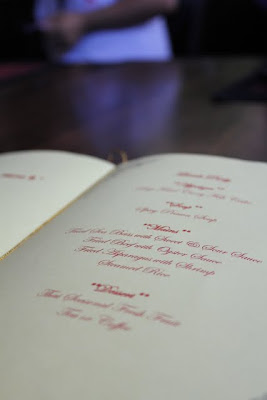 ** Soup **
Spicy Prawn Soup
** Mains **
Fried Sea Bass with Sweet & Sour Sauce
Fried Beef with Oyster Sauce
Fried Asparagus with Shrimp
Steamed Rice
** Dessert **
Thai Seasonal Fresh Fruit
Tea or Coffee